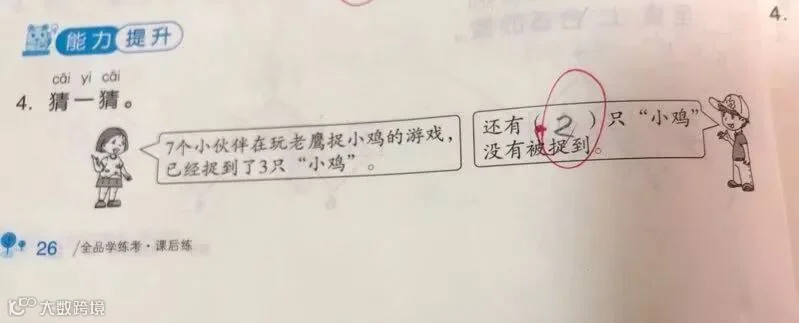 能力提升
4.
cāi yi cāi
4. 猜一猜。
7个小伙伴在玩老鹰捉小鸡的游戏，
已经捉到了3只“小鸡”。
还有（2）只“小鸡”
没有被捉到。
26 /全品学练考·课后练
大数跨境